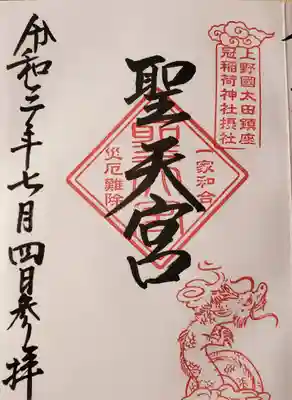 上野國太田鎮座
冠稲荷神社摂社
一家和合
聖天宮
災厄難除
令和三年七月四日参拝